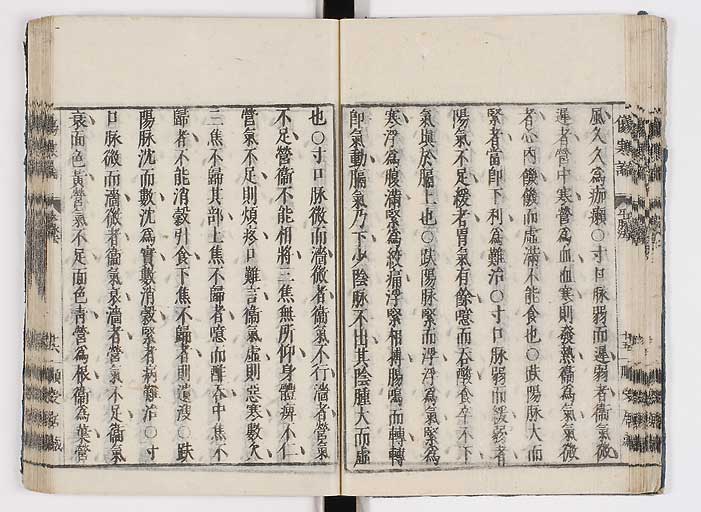 風久久為痂癩○寸口脉弱而遲弱者衞氣微
遲者營中寒營為血血寒則發熱衞為氣氣微
者心內饑饑而虛滿不能食也○趺陽脉大而
緊者當即下利為難治○寸口脉弱而緩弱者
陽氣不足緩者胃氣有餘噫而吞酸食卒不下
氣填於膈上也○趺陽脉緊而浮浮為氣緊為
寒浮為腹滿緊為絞痛浮緊相摶腸鳴而轉轉
即氣動膈氣乃下少陰脉不出其陰腫大而虛
也○寸口脉微而濇微者衞氣不行濇者營氣
不足營衞不能相將三焦無所仰身體痺不仁
營氣不足則煩疼口難言衞氣虛則惡寒數欠
三焦不歸其部上焦不歸者噫而酢吞中焦不
歸者不能消穀引食下焦不歸者則遺溲○趺
陽脉沈而數沈為實數消穀緊者病難治○寸
口脉微而濇微者衞氣衰濇者營氣不足衞氣
衰面色黃營氣不足面色青營為根衞為葉營
傷寒論